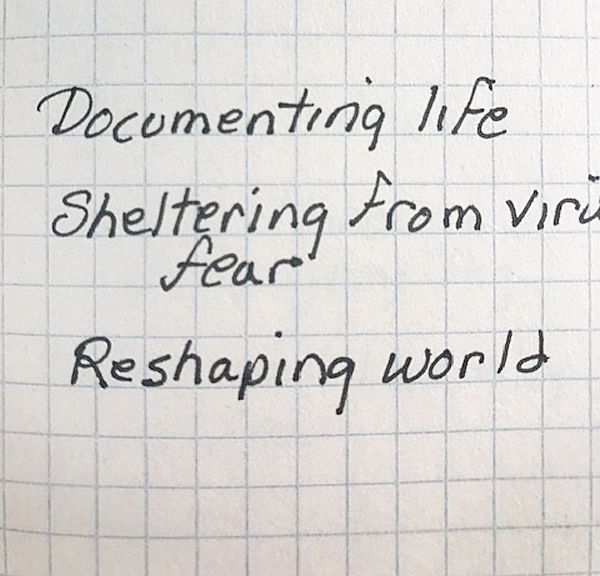 Documenting life
Sheltering from viru
fear
Reshaping world